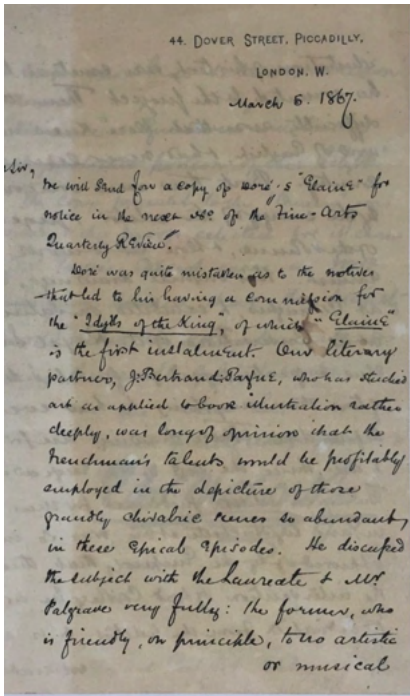 44. DOVER STREET, PICCADILLY,
LONDON. W.
March 6. 1867.
Sir,
We will send for a copy of Doré's "Elaine" for
notice in the next No of the "Fine-Arts
Quarterly Review".
Doré was quite mistaken as to the motives
that led to his having a commission for
the "Idylls of the King", of which "Elaine"
is the first instalment. Our literary
partner, J. Bertrand Payne, who has studied
art as applied to book illustration rather
deeply, was long of opinion that the
Frenchman's talents would be profitably
employed in the depicture of those
grandly chivalric scenes so abundant
in these Epical Episodes. He discussed
the subject with the Laureate & Mr
Palgrave very fully: the former, who
is friendly, on principle, to no artistic
or musical